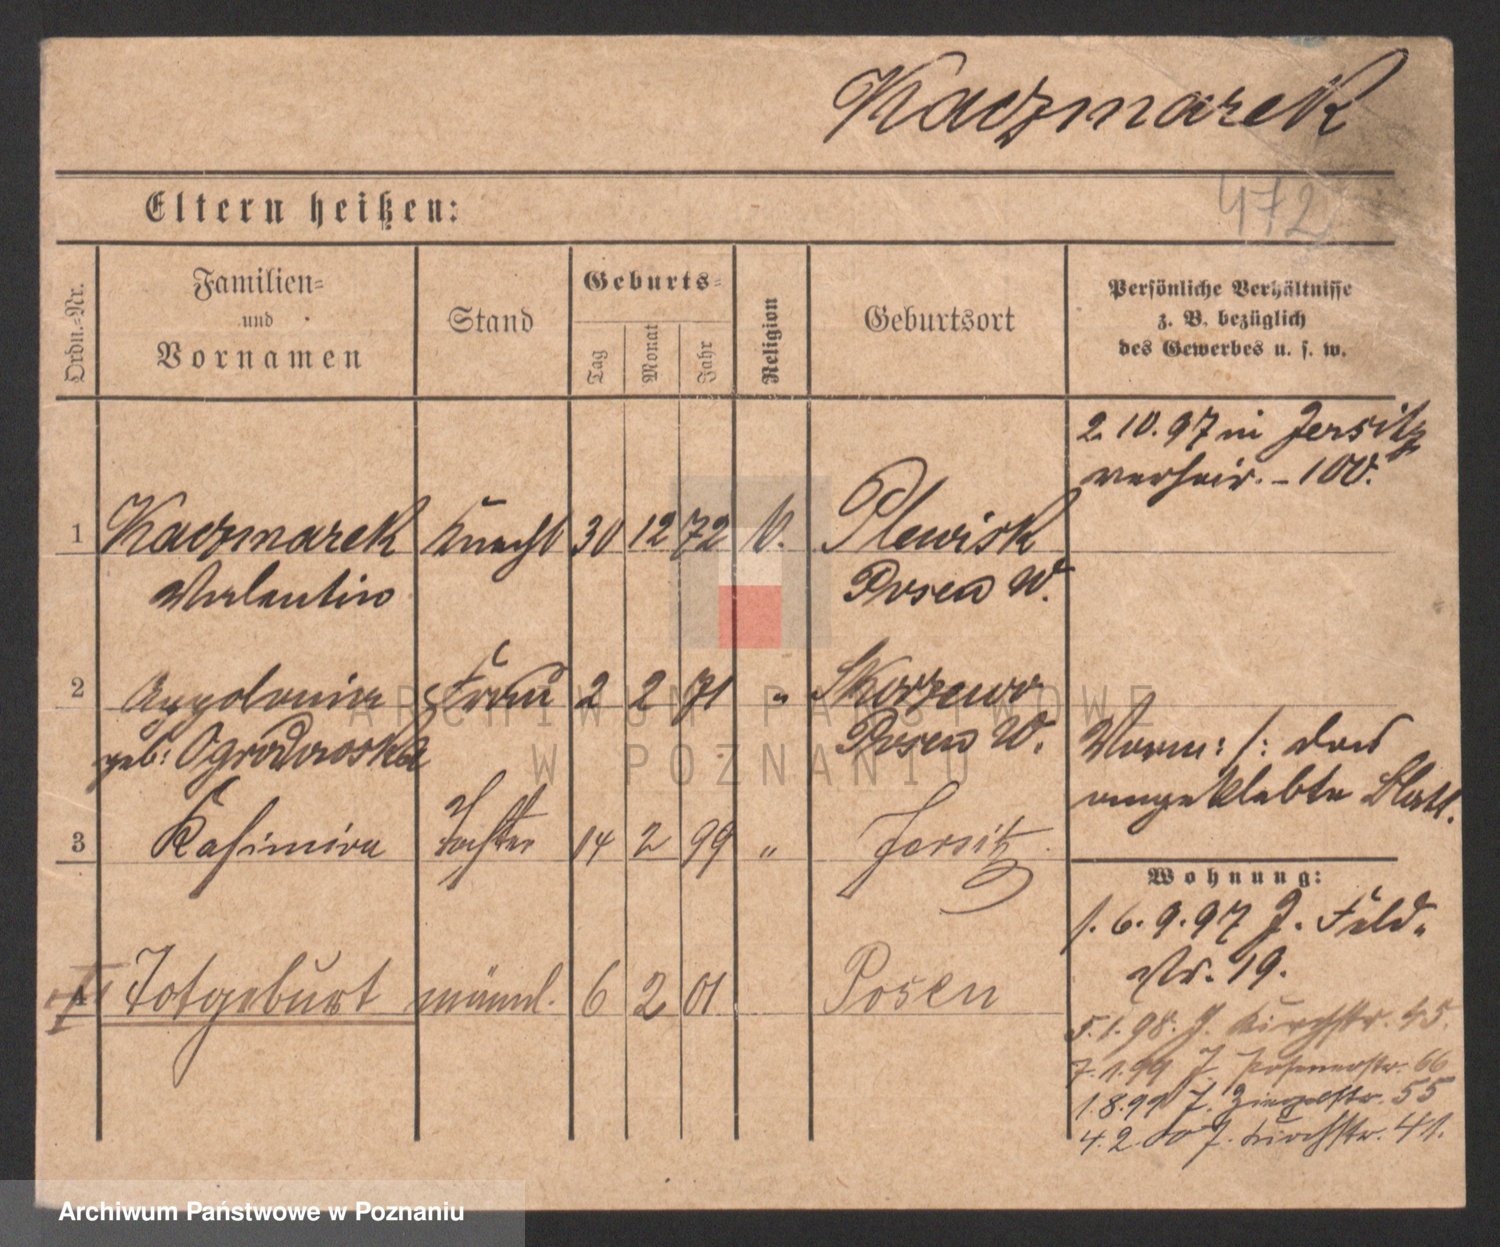 Kaczmarek
472
Eltern heißen:
Ordn.-Nr.
Familien- und Vornamen
Stand
Geburts-
Tag
Monat
Jahr
Religion
Geburtsort
Persönliche Verhältnisse
z. B. bezüglich
des Gewerbes u. s. w.
2. 10. 97 in Jersitz
verheir. – 100.
1 Kaczmarek Knecht 30 12 72 k. Plewisk
Valentin Posen W.
2 Appolonia Frau 2 2 71 " Skorzewo
geb: Ogrodowska Posen W.
Vorm: /: das
angeklebte Blatt.
3 Kasimira Tochter 14 2 99 " Jersitz
Wohnung:
1. 6. 9. 97 J. Feld-
Nr. 19.
4 Totgeburt männl. 6 2 01 Posen
5. 1. 98. J. Kirchstr. 45.
7. 1. 99 J. Posenerstr. 66
1. 8. 99 J. 55
4. 2. 00 J. Kirchstr. 41.
ARCHIWUM PAŃSTWOWE
W POZNANIU
Archiwum Państwowe w Poznaniu